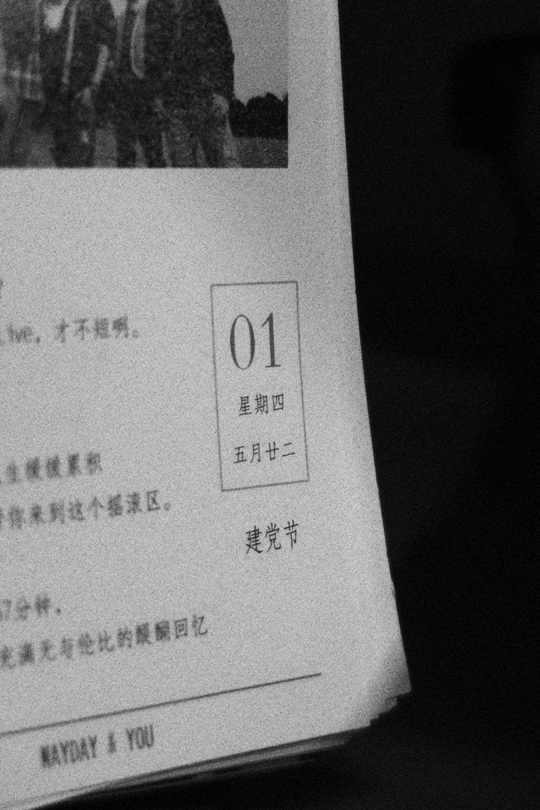 Live，才不短啊。
01
星期四
五月廿二
生缓缓累积
你来到这个摇滚区。
建党节
57分钟，
充满无与伦比的醍醐回忆
MAYDAY & YOU